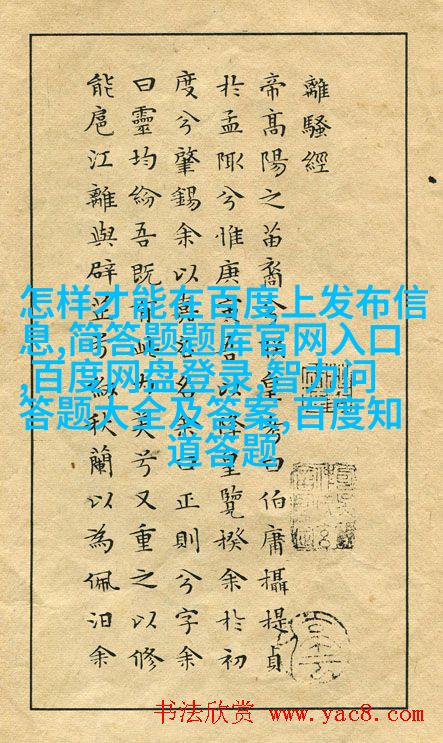 離騷經
帝高陽之苗裔兮朕皇考曰伯庸攝提貞
於孟陬兮惟庚寅吾以降皇覽揆余於初
度兮肇錫余以嘉名名余曰正則兮字余
曰靈均紛吾既有此內美兮又重之以修
能扈江離與辟芷兮紉秋蘭以為佩汨余
怎样才能在百度上发布信
息,简答题题库官网入口
,百度网盘登录,智力问
答题大全及答案,百度知
道答题
书法欣赏 www.yac8.com